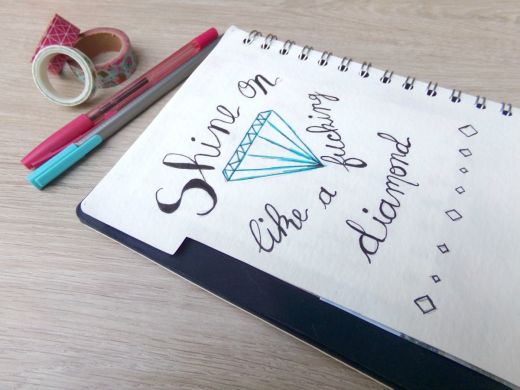 Shine on
like a fucking
diamond